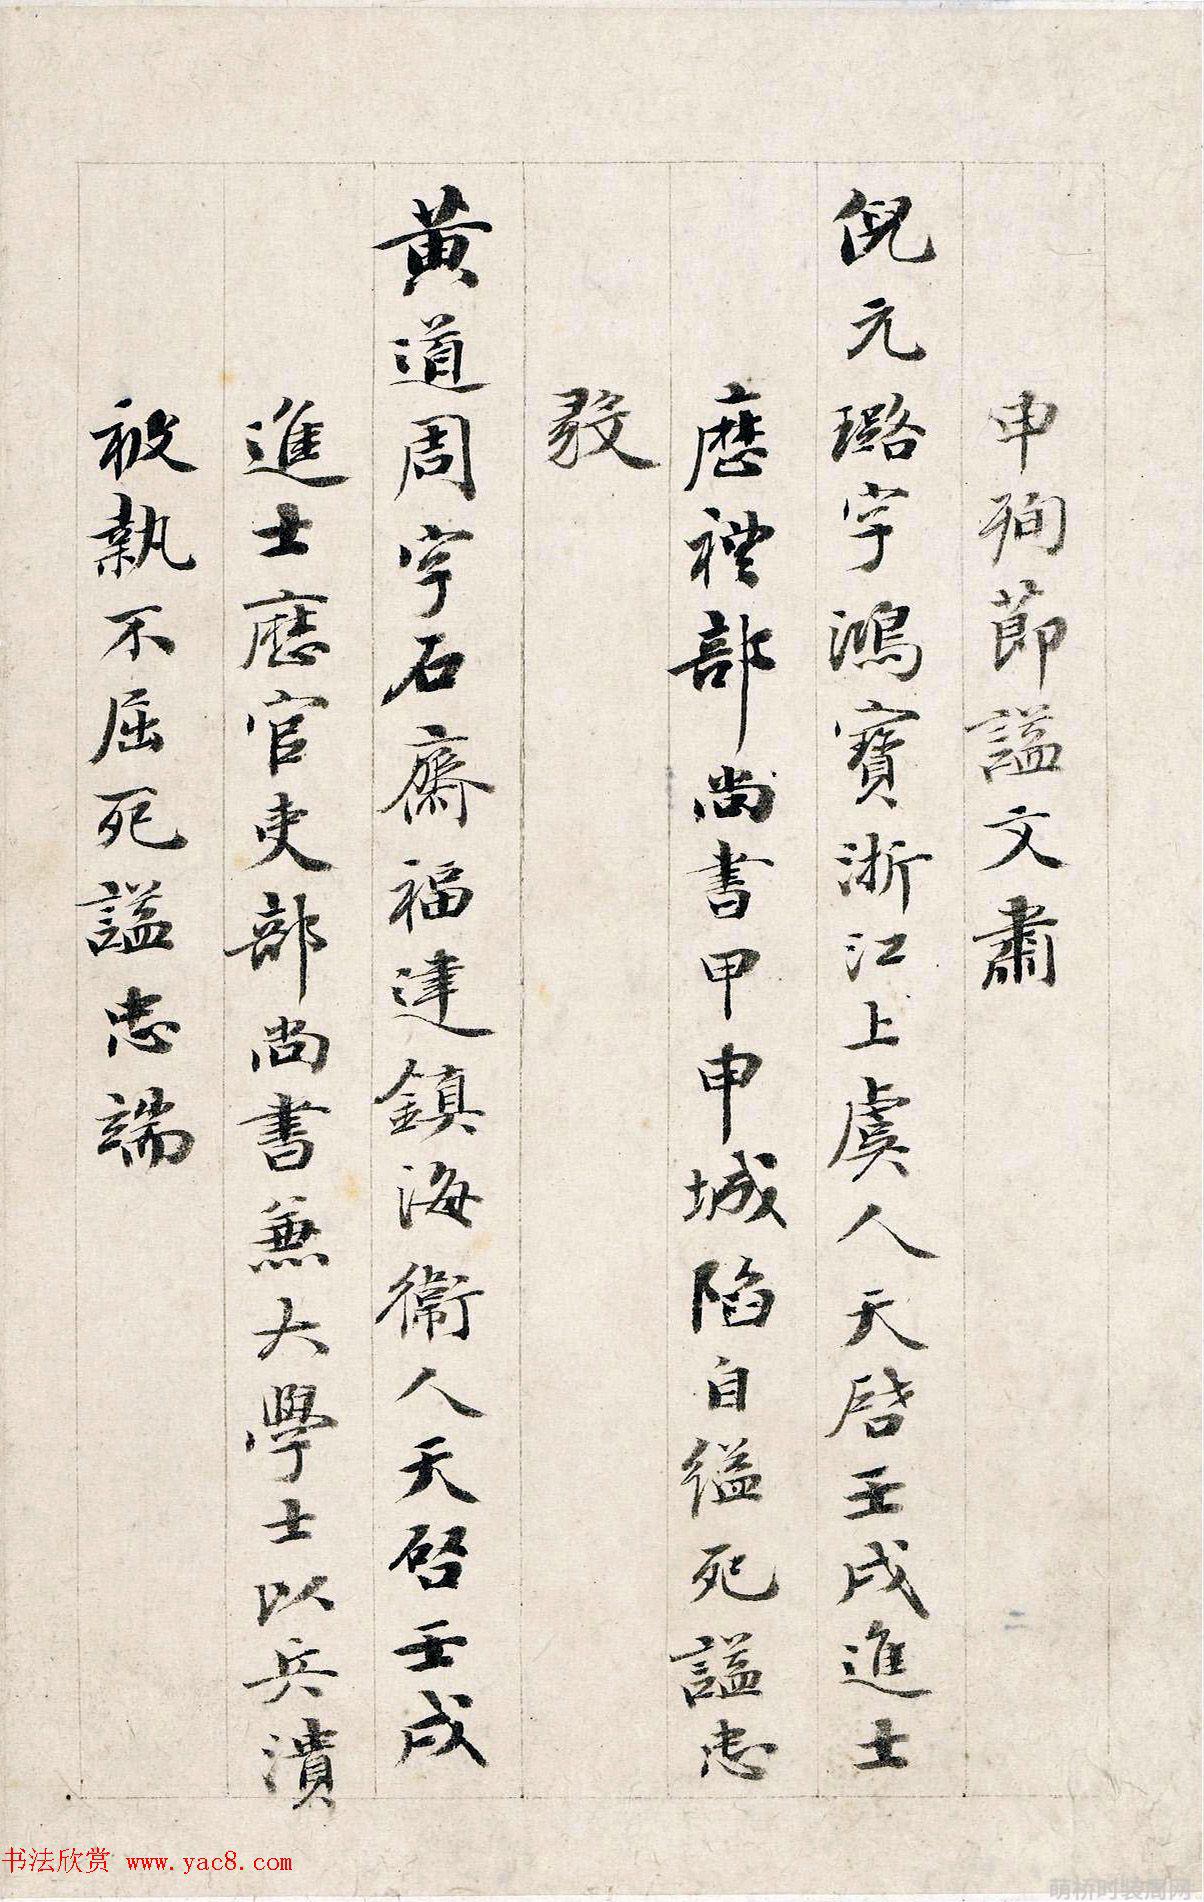 申殉節謚文肅
倪元璐字鴻寶浙江上虞人天啓壬戌進士
歷禮部尚書甲申城陷自縊死謚忠
毅
黃道周字石齋福建鎮海衛人天啓壬戌
進士歷官吏部尚書兼大學士以兵潰
被執不屈死謚忠端
书法欣赏 www.yac8.com
萌桥时装周网